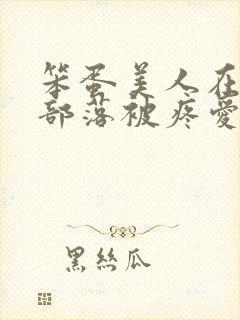 笨蛋美人在
部落被疼愛
黑絲瓜